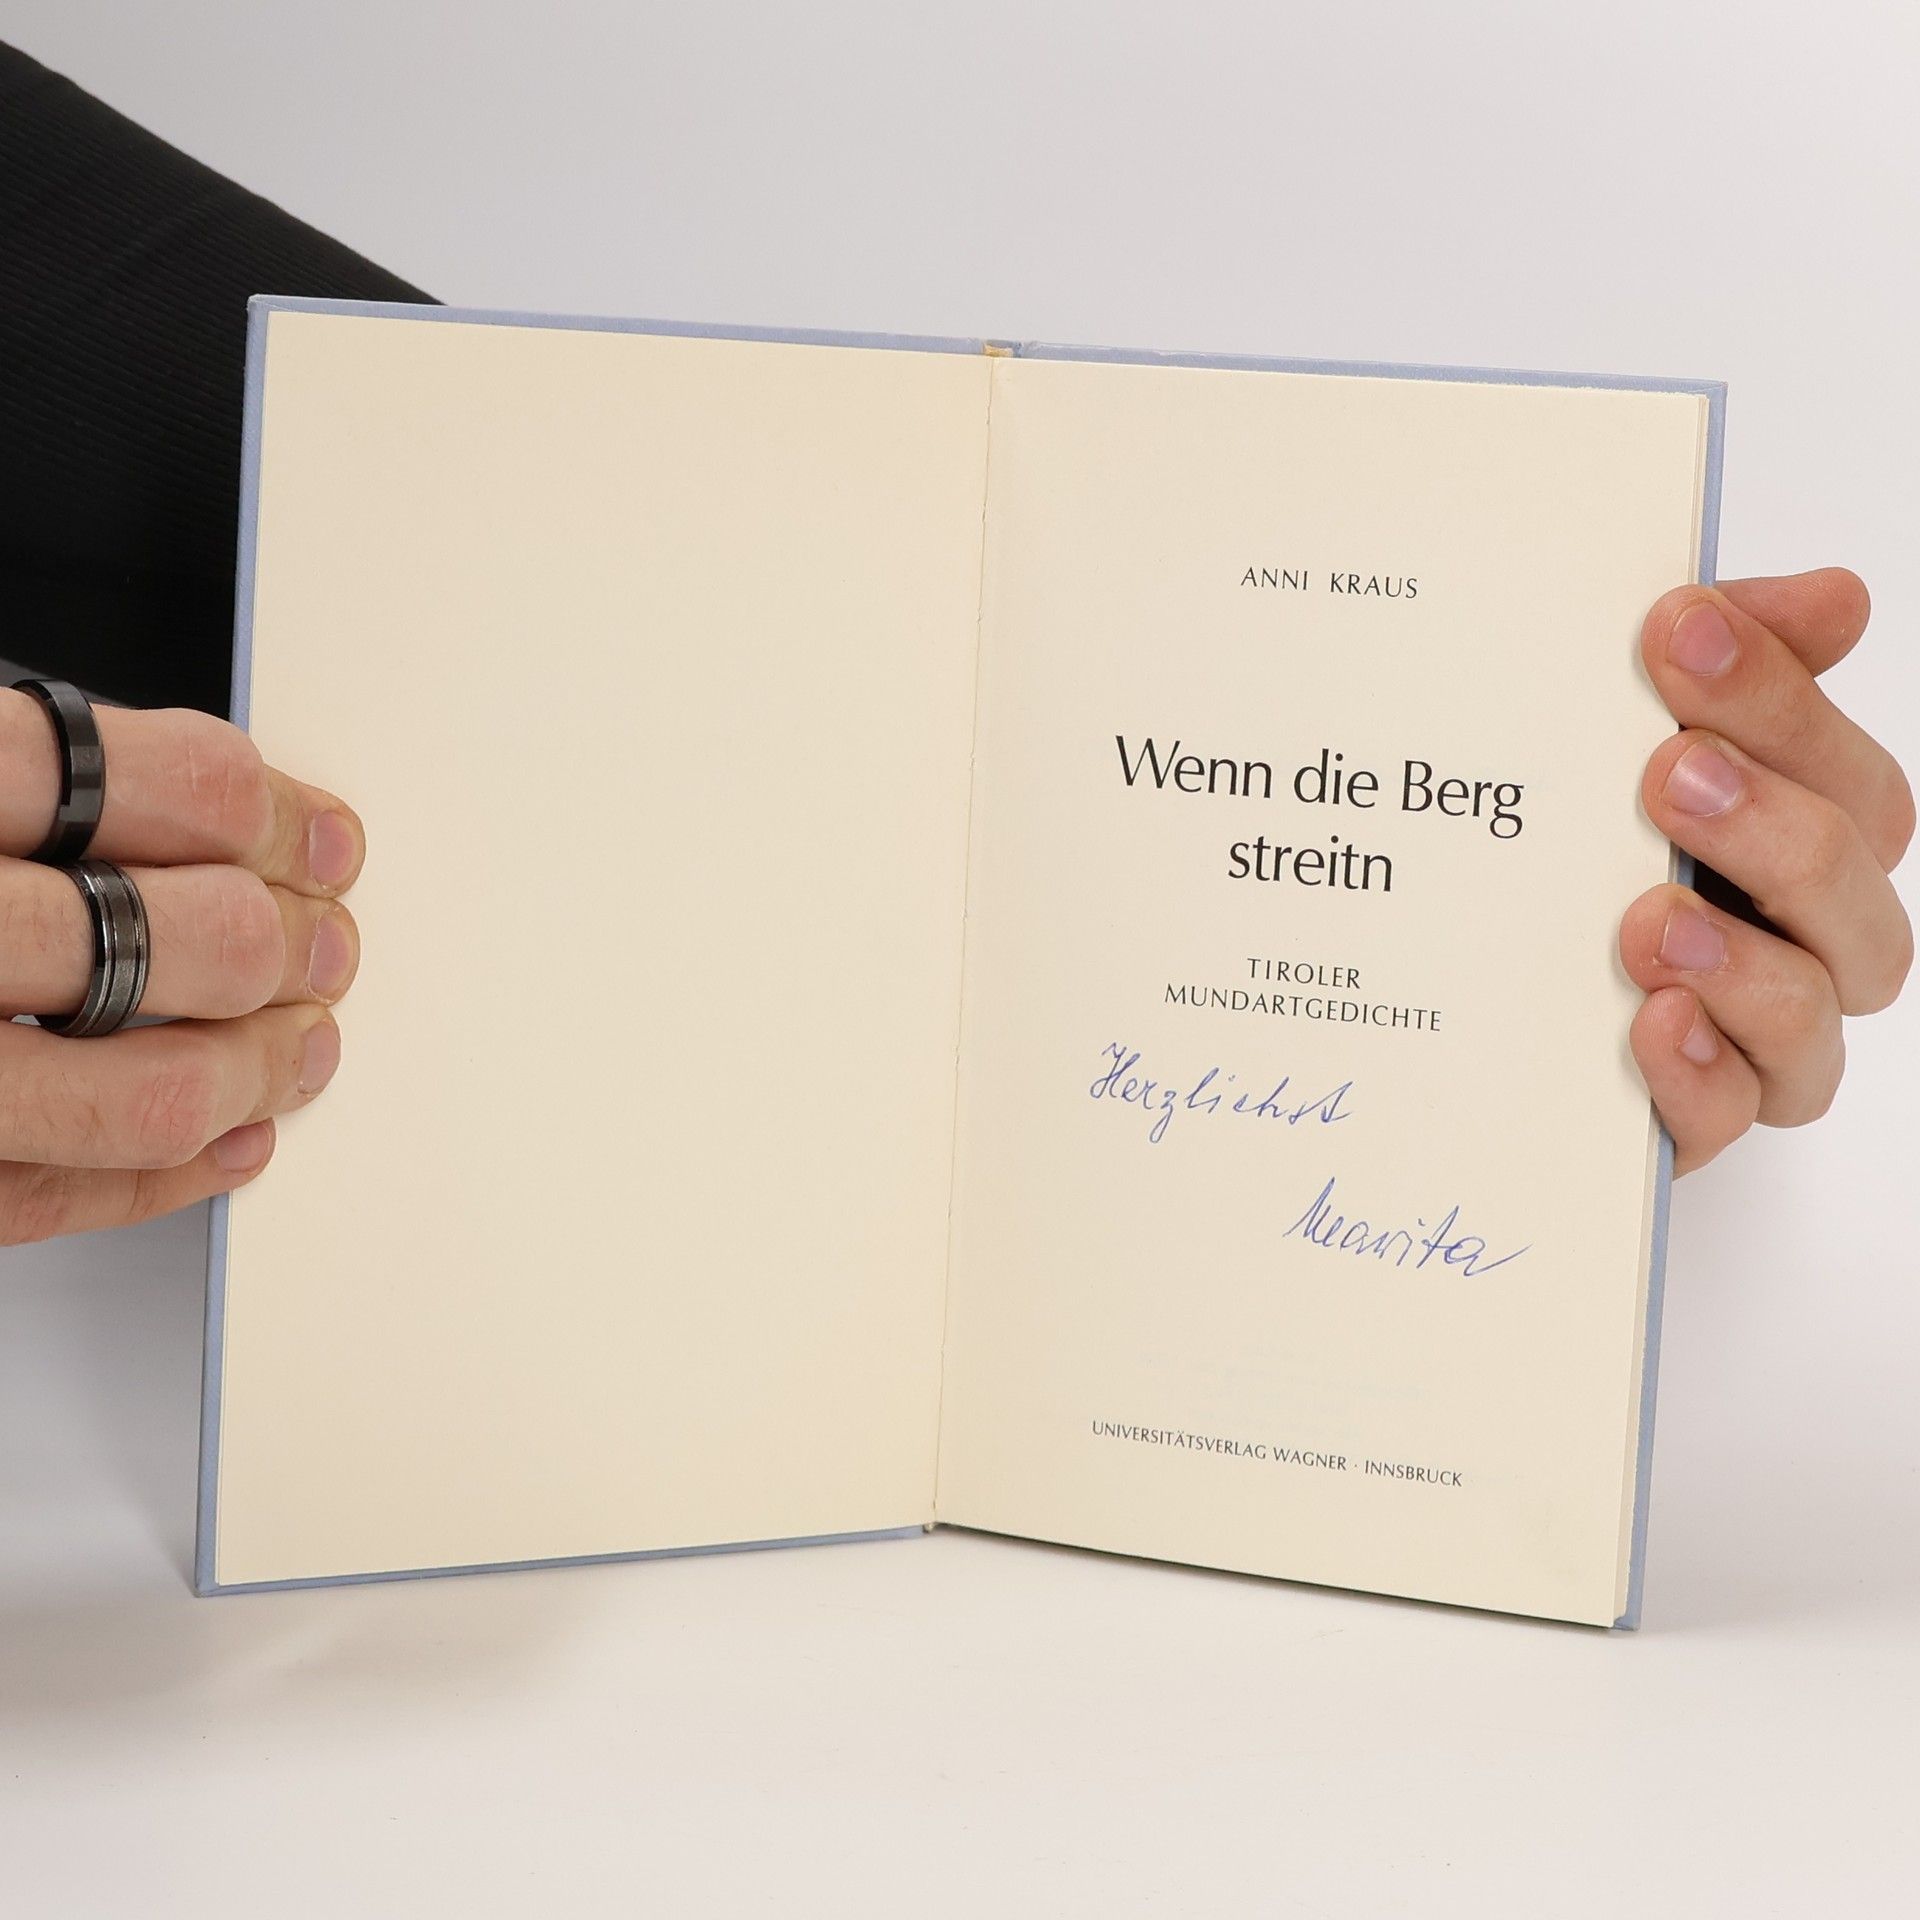 ANNI KRAUS
Wenn die Berg
streitn
TIROLER
MUNDARTGEDICHTE
Herzlichst
Marita
UNIVERSITÄTSVERLAG WAGNER · INNSBRUCK